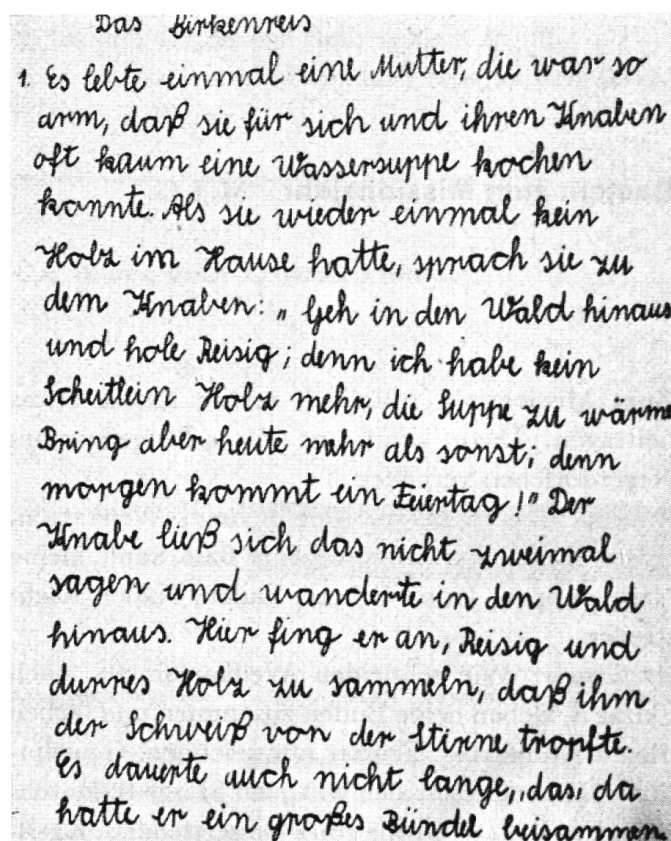 Das Birkenreis
1. Es lebte einmal eine Mutter, die war so
arm, daß sie für sich und ihren Knaben
oft kaum eine Wassersuppe kochen
konnte. Als sie wieder einmal kein
Holz im Hause hatte, sprach sie zu
dem Knaben: „Geh in den Wald hinaus
und hole Reisig; denn ich habe kein
Scheitlein Holz mehr, die Suppe zu wärme
Bring aber heute mehr als sonst; denn
morgen kommt ein Feiertag!" Der
Knabe ließ sich das nicht zweimal
sagen und wanderte in den Wald
hinaus. Hier fing er an, Reisig und
durres Holz zu sammeln, daß ihm
der Schweiß von der Stirne tropfte.
Es dauerte auch nicht lange, das, da
hatte er ein großes Bündel beisammen.